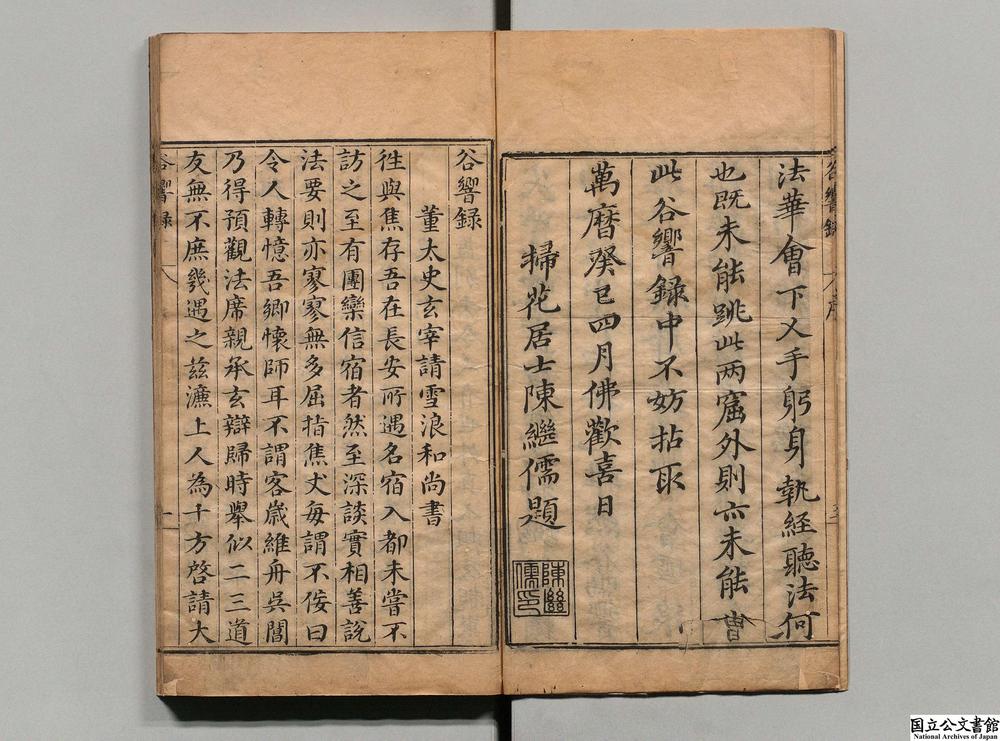 法華會下乂手躬身執經聽法何
也既未能跳此两窟外則亦未能
此谷響録中不妨拈取
萬曆癸巳四月佛歡喜日
掃花居士陳繼儒題
陳繼
儒印
谷響録
谷響録
董太史玄宰請雪浪和尚書
徃與焦存吾在長安所遇名宿入都未嘗不
訪之至有團欒信宿者然至深談實相善説
法要則亦寥寥無多屈指焦丈每謂不佞曰
令人轉憶吾鄉懷師耳不謂客歳維舟吳閶
乃得預觀法席親承玄辯歸時舉似二三道
友無不庶幾遇之兹濂上人為十方啓請大
谷響録
一
国立公文書館
National Archives of Japan